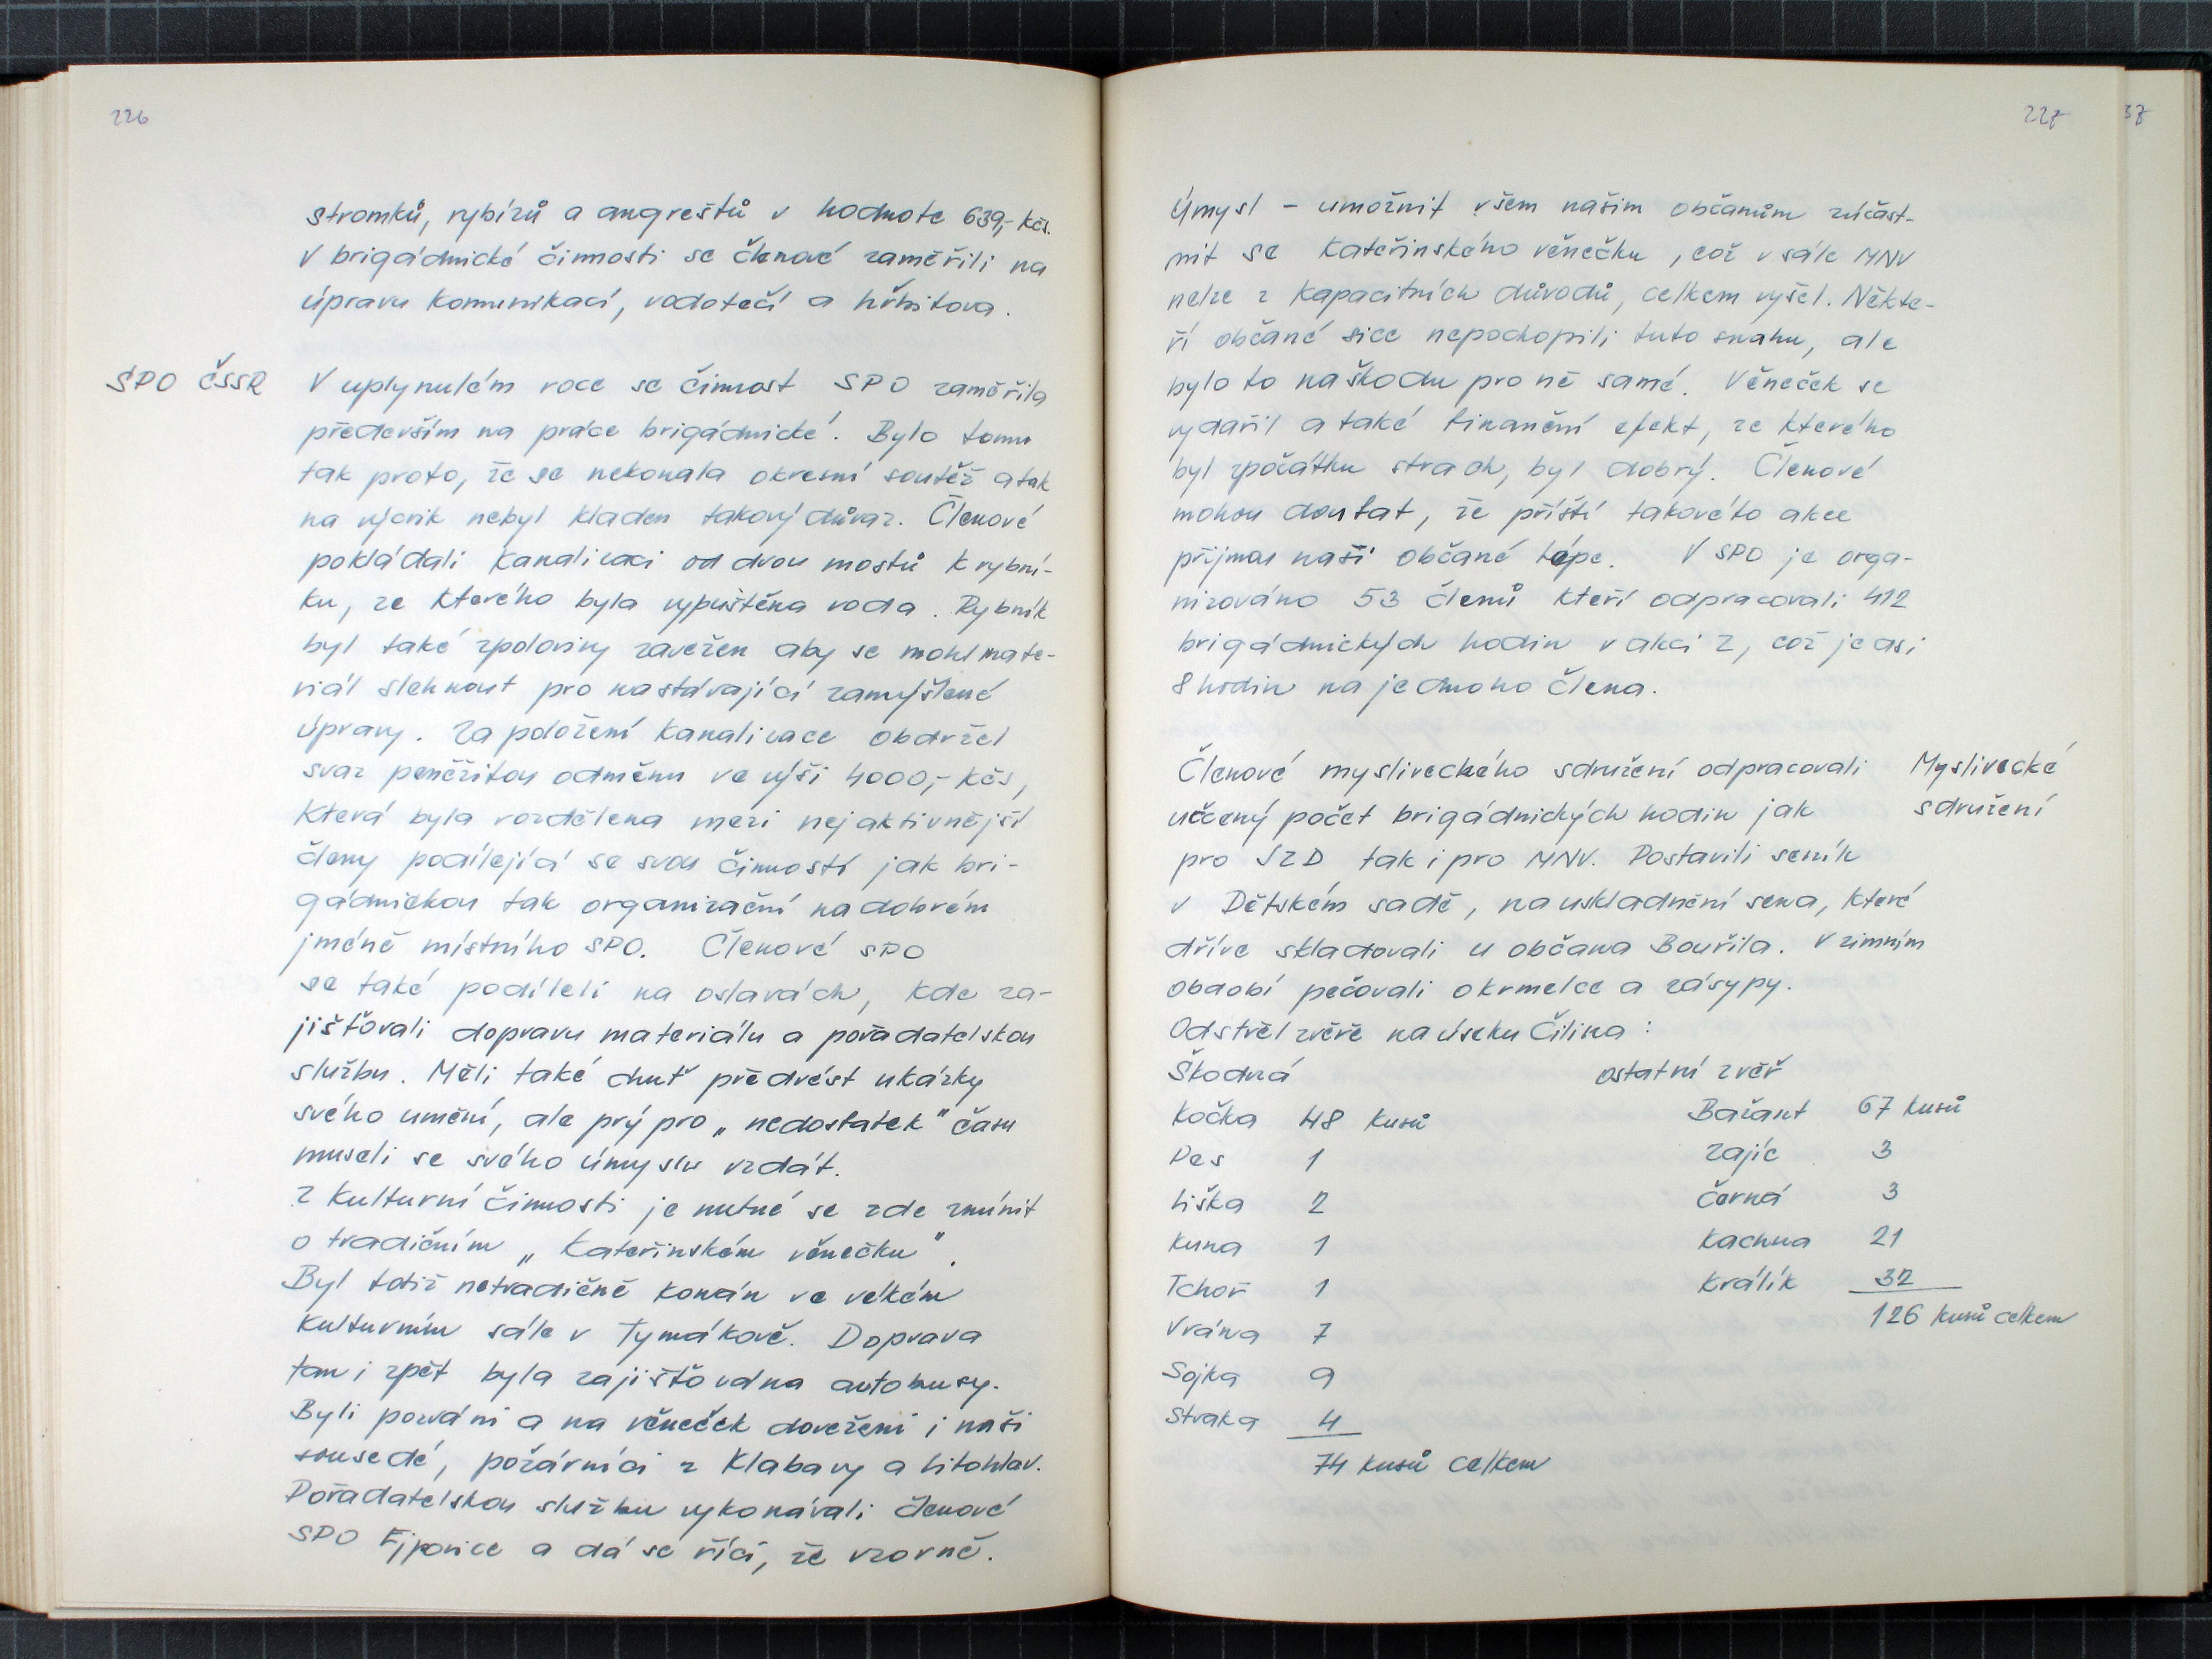 226
stromků, rybízů a angreštů v hodnote 639,- Kčs.
V brigádnické činnosti se členové zaměřili na
úpravu komunikací, vodotečí a hřbitova.
SPO ČSSR
V uplynulém roce se činnost SPO zaměřila
především na práce brigádnické. Bylo tomu
tak proto, že se nekonala okresní soutěž a tak
na výcvik nebyl kladen takový důraz. Členové
pokládali kanalizaci od dvou mostů k rybní-
ku, ze kterého byla vypuštěna voda. Rybník
byl také zpoloviny zavežen aby se mohl mate-
riál slehnout pro nastávající zamýšlené
úpravy. Za položení kanalizace obdržel
svaz peněžitou odměnu ve výši 4000,- Kčs,
která byla rozdělena mezi nejaktivnější
členy podílející se svou činností jak bri-
gádnickou tak organizační na dobrém
jméně místního SPO. Členové SPO
se také podíleli na oslavách, kde za-
jišťovali dopravu materiálu a pořadatelskou
službu. Měli také chuť předvést ukázky
svého umění, ale prý pro „nedostatek" času
museli se svého úmyslu vzdát.
Z kulturní činnosti je nutné se zde zmínit
o tradičním „Kateřinském věnečku".
Byl totiž netradičně konán ve velkém
kulturním sále v Tymákově. Doprava
tam i zpět byla zajišťována autobusy.
Byli pozváni a na věneček dovežení i naši
sousedé, požárníci z Klabavy a Litohlav.
Pořadatelskou službu vykonávali členové
SPO Ejpovice a dá se říci, že vzorně.
227
37
Úmysl - umožnit všem našim občanům zúčast-
nit se Kateřinského věnečku, což v sále MNV
nelze z kapacitních důvodů, celkem vyšel. Někte-
ří občané sice nepochopili tuto snahu, ale
bylo to na škodu pro ně samé. Věneček se
vydařil a také finanční efekt, ze kterého
byl zpočátku strach, byl dobrý. Členové
mohou doufat, že příští takovéto akce
přijmou naši občané lépe. V SPO je orga-
nizováno 53 členů kteří odpracovali 412
brigádnických hodin v akci Z, což je asi
8 hodin na jednoho člena.
Členové mysliveckého sdružení odpracovali
Myslivecké
určený počet brigádnických hodin jak
sdružení
pro JZD tak i pro MNV. Postavili seník
v Dětském sadě, na uskladnění sena, které
dříve skladovali u občana Bouřila. V zimním
období pečovali o krmelce a zásypy.
Odstřel zvěře na úseku Čilina:
Škodná ostatní zvěř
Kočka 48 kusů Bažant 67 kusů
Pes 1 Zajíc 3
Liška 2 Černá 3
Kuna 1 Kachna 21
Tchoř 1 Králík 32
126 kusů celkem
Vrána 7
Sojka 9
Straka 4
74 kusů celkem